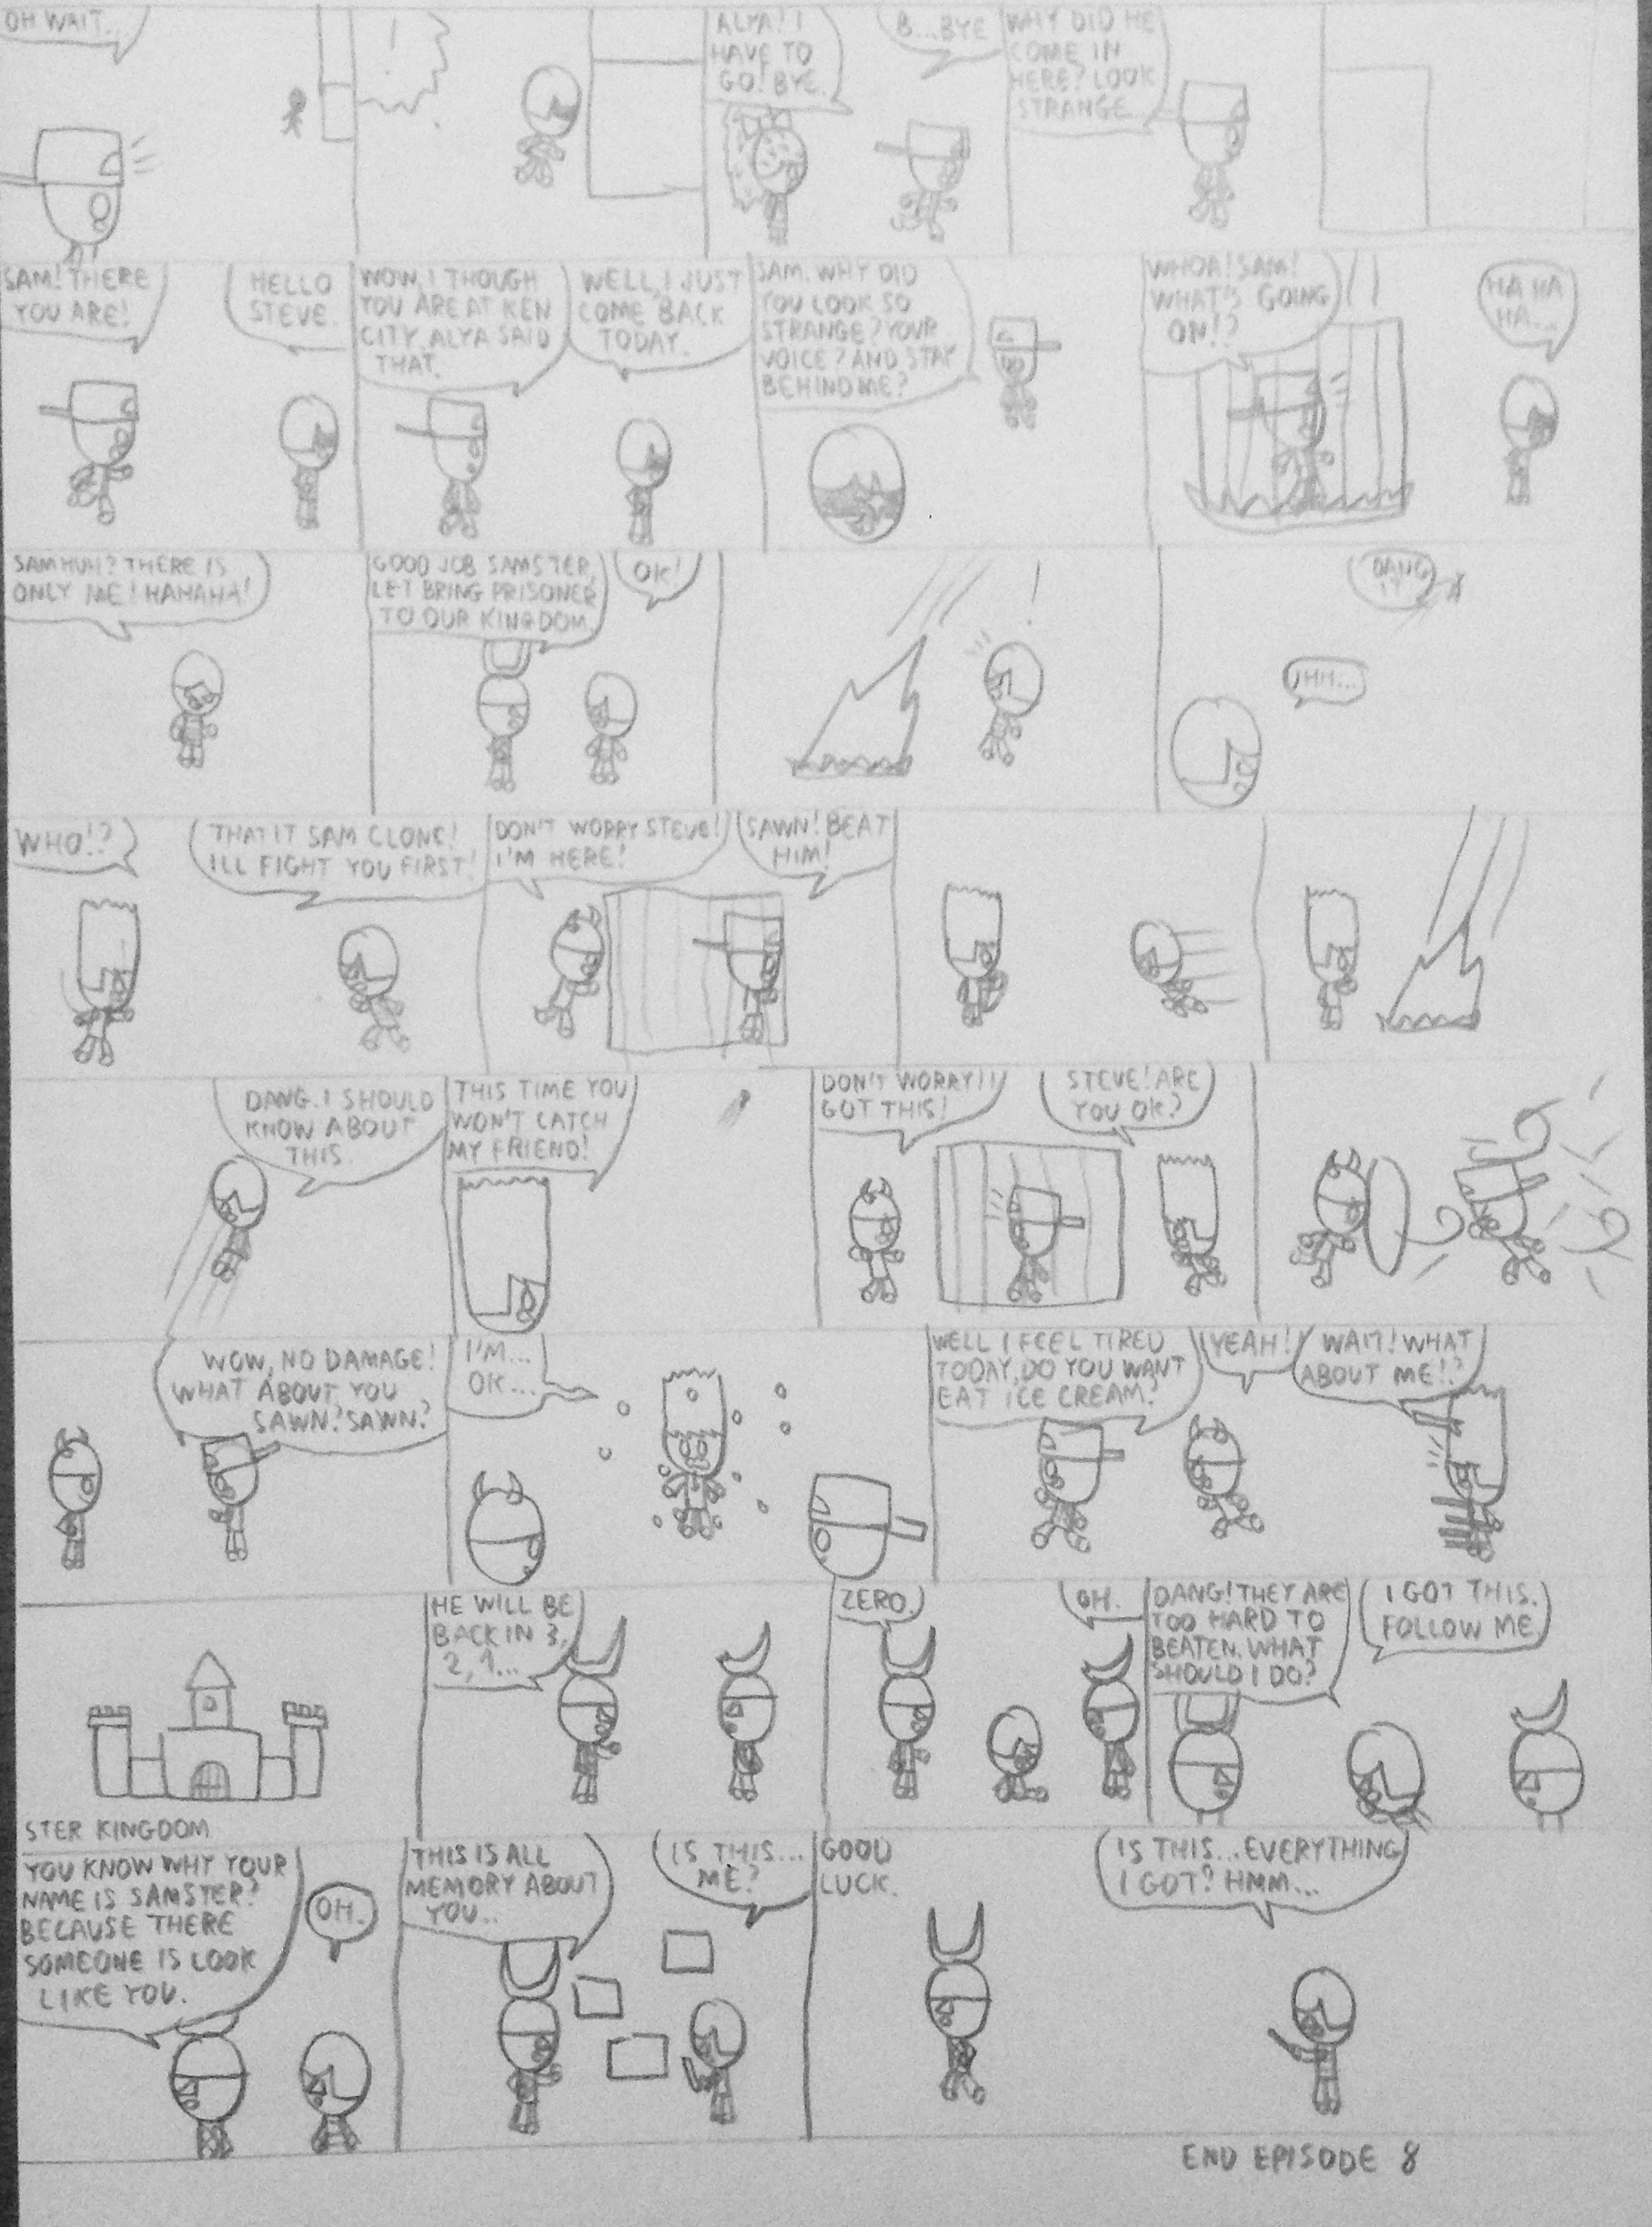 OH WAIT...
!
ALYA! I
HAVE TO
GO! BYE.
B...BYE
WHY DID HE
COME IN
HERE? LOOK
STRANGE...
SAM! THERE
YOU ARE!
HELLO
STEVE.
WOW, I THOUGH
YOU ARE AT KEN
CITY, ALYA SAID
THAT.
WELL, I JUST
COME BACK
TODAY.
SAM. WHY DID
YOU LOOK SO
STRANGE? YOUR
VOICE? AND STAY
BEHIND ME?
WHOA! SAM!
WHAT'S GOING
ON!?
HA HA
HA...
SAM HUH? THERE IS
ONLY ME! HAHAHA!
GOOD JOB SAMSTER,
LET BRING PRISONER
TO OUR KINGDOM.
OK!
!
DANG
IT
UHH...
WHO!?
THAT IT SAM CLONE!
ILL FIGHT YOU FIRST!
DON'T WORRY STEVE!
I'M HERE!
SAWN! BEAT
HIM!
DANG. I SHOULD
KNOW ABOUT
THIS.
THIS TIME YOU
WON'T CATCH
MY FRIEND!
DON'T WORRY! I
GOT THIS!
STEVE! ARE
YOU OK?
WOW, NO DAMAGE!
WHAT ABOUT YOU
SAWN? SAWN?
I'M...
OK...
WELL I FEEL TIRED
TODAY, DO YOU WANT
EAT ICE CREAM?
YEAH!
WAIT! WHAT
ABOUT ME!?
STER KINGDOM
HE WILL BE
BACK IN 3,
2, 1...
ZERO.
OH.
DANG! THEY ARE
TOO HARD TO
BEATEN. WHAT
SHOULD I DO?
I GOT THIS.
FOLLOW ME.
YOU KNOW WHY YOUR
NAME IS SAMSTER?
BECAUSE THERE
SOMEONE IS LOOK
LIKE YOU.
OH.
THIS IS ALL
MEMORY ABOUT
YOU..
IS THIS...
ME?
GOOD
LUCK.
IS THIS...EVERYTHING
I GOT? HMM...
END EPISODE 8